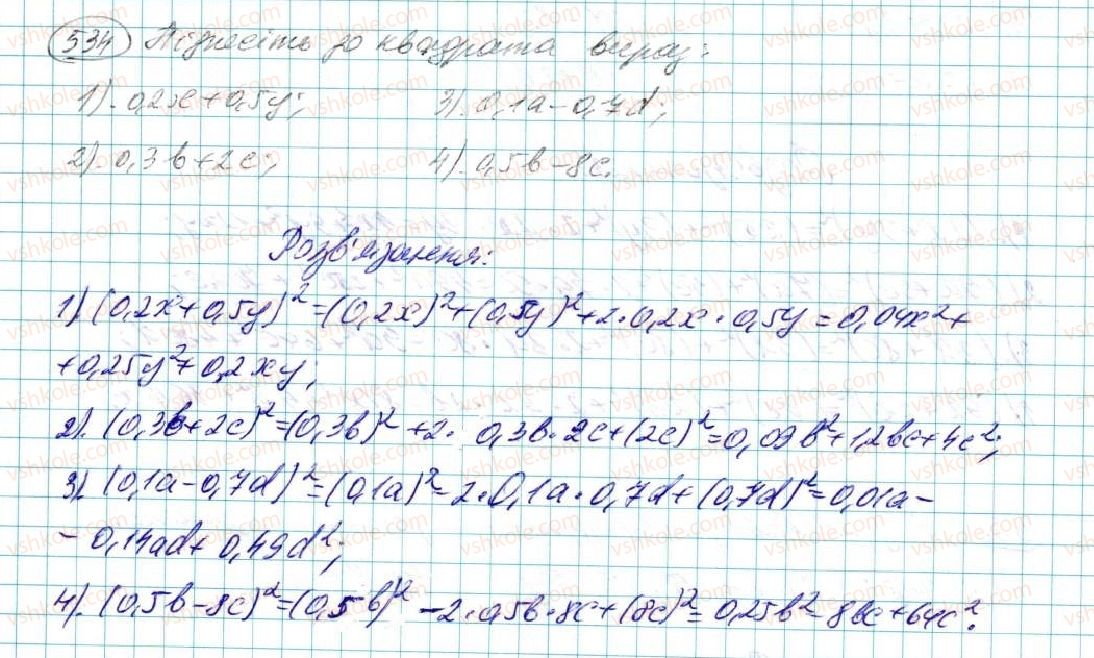 534 Піднесіть до квадрата вираз:
1). 0,2x + 0,5y; 3). 0,1a - 0,7d;
2). 0,3b + 2c; 4). 0,5b - 8c.
Розв'язання:
1) (0,2x + 0,5y)² = (0,2x)² + (0,5y)² + 2·0,2x·0,5y = 0,04x² +
+ 0,25y² + 0,2xy;
2). (0,3b + 2c)² = (0,3b)² + 2· 0,3b·2c + (2c)² = 0,09b² + 1,2bc + 4c²;
3). (0,1a - 0,7d)² = (0,1a)² = 2·0,1a·0,7d + (0,7d)² = 0,01a -
- 0,14ad + 0,49d²;
4). (0,5b - 8c)² = (0,5b)² - 2·0,5b·8c + (8c)² = 0,25b² - 8bc + 64c².